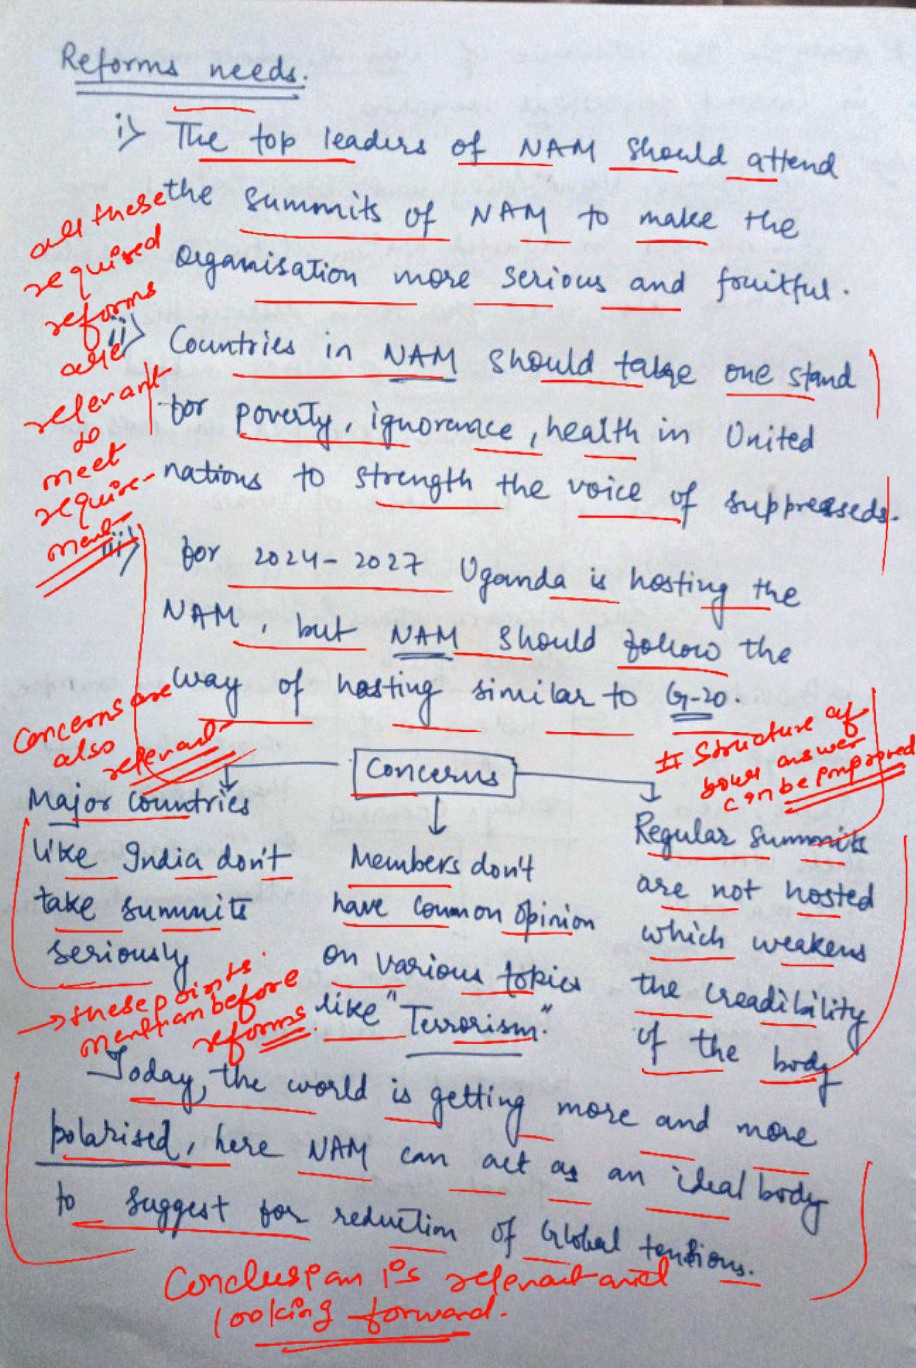 Reforms needs.
i> The top leaders of NAM should attend
the summits of NAM to make the
Organisation more serious and fruitful.
all these
required
reforms
are
relevant
to
meet
require-
ment
ii> Countries in NAM should take one stand
for poverty, ignorance, health in United
nations to strength the voice of suppresseds.
iii> for 2024-2027 Uganda is hosting the
NAM, but NAM should follow the
way of hosting similar to G-20.
Concerns are
also
relevant
# Structure of
your answer
can be improved
Concerns
Major Countries
like India don't
take summits
seriously
Members don't
have common opinion
on various topics
like "Terrorism."
Regular Summits
are not hosted
which weakens
the creadibility
of the body
→ these points
mention before
reforms.
Today, the world is getting more and more
polarised, here NAM can act as an ideal body
to suggest for reduction of Global tensions.
Conclusion is relevant and
looking forward.